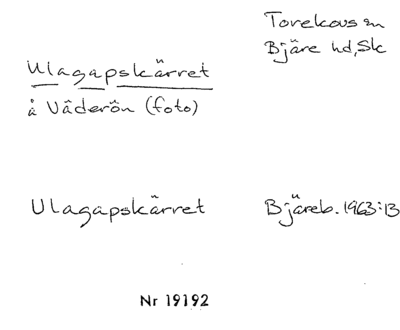 Torekovs sn
Bjäre hd, Sk
Ulagapskärret
å Väderön (foto)
Ulagapskärret
Bjäreb. 1963:13
Nr 19192